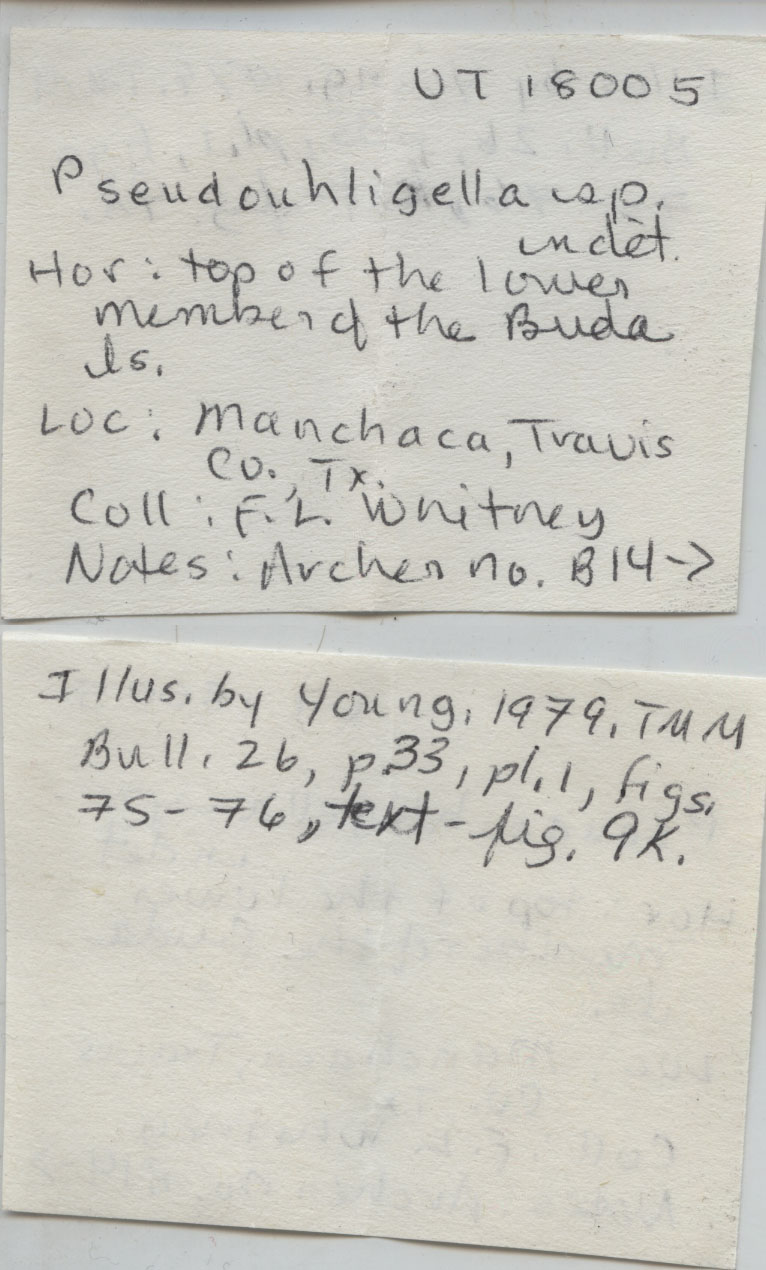 UT 18005
Pseudouhligella sp.
indet.
Hor: top of the lower
member of the Buda
ls.
Loc: Manchaca, Travis
Co., Tx.
Coll: F.L. Whitney
Notes: Archer no. B14->
Illus. by Young, 1979, TMM
Bull. 26, p.33, pl.1, figs.
75-76, text-fig. 9K.